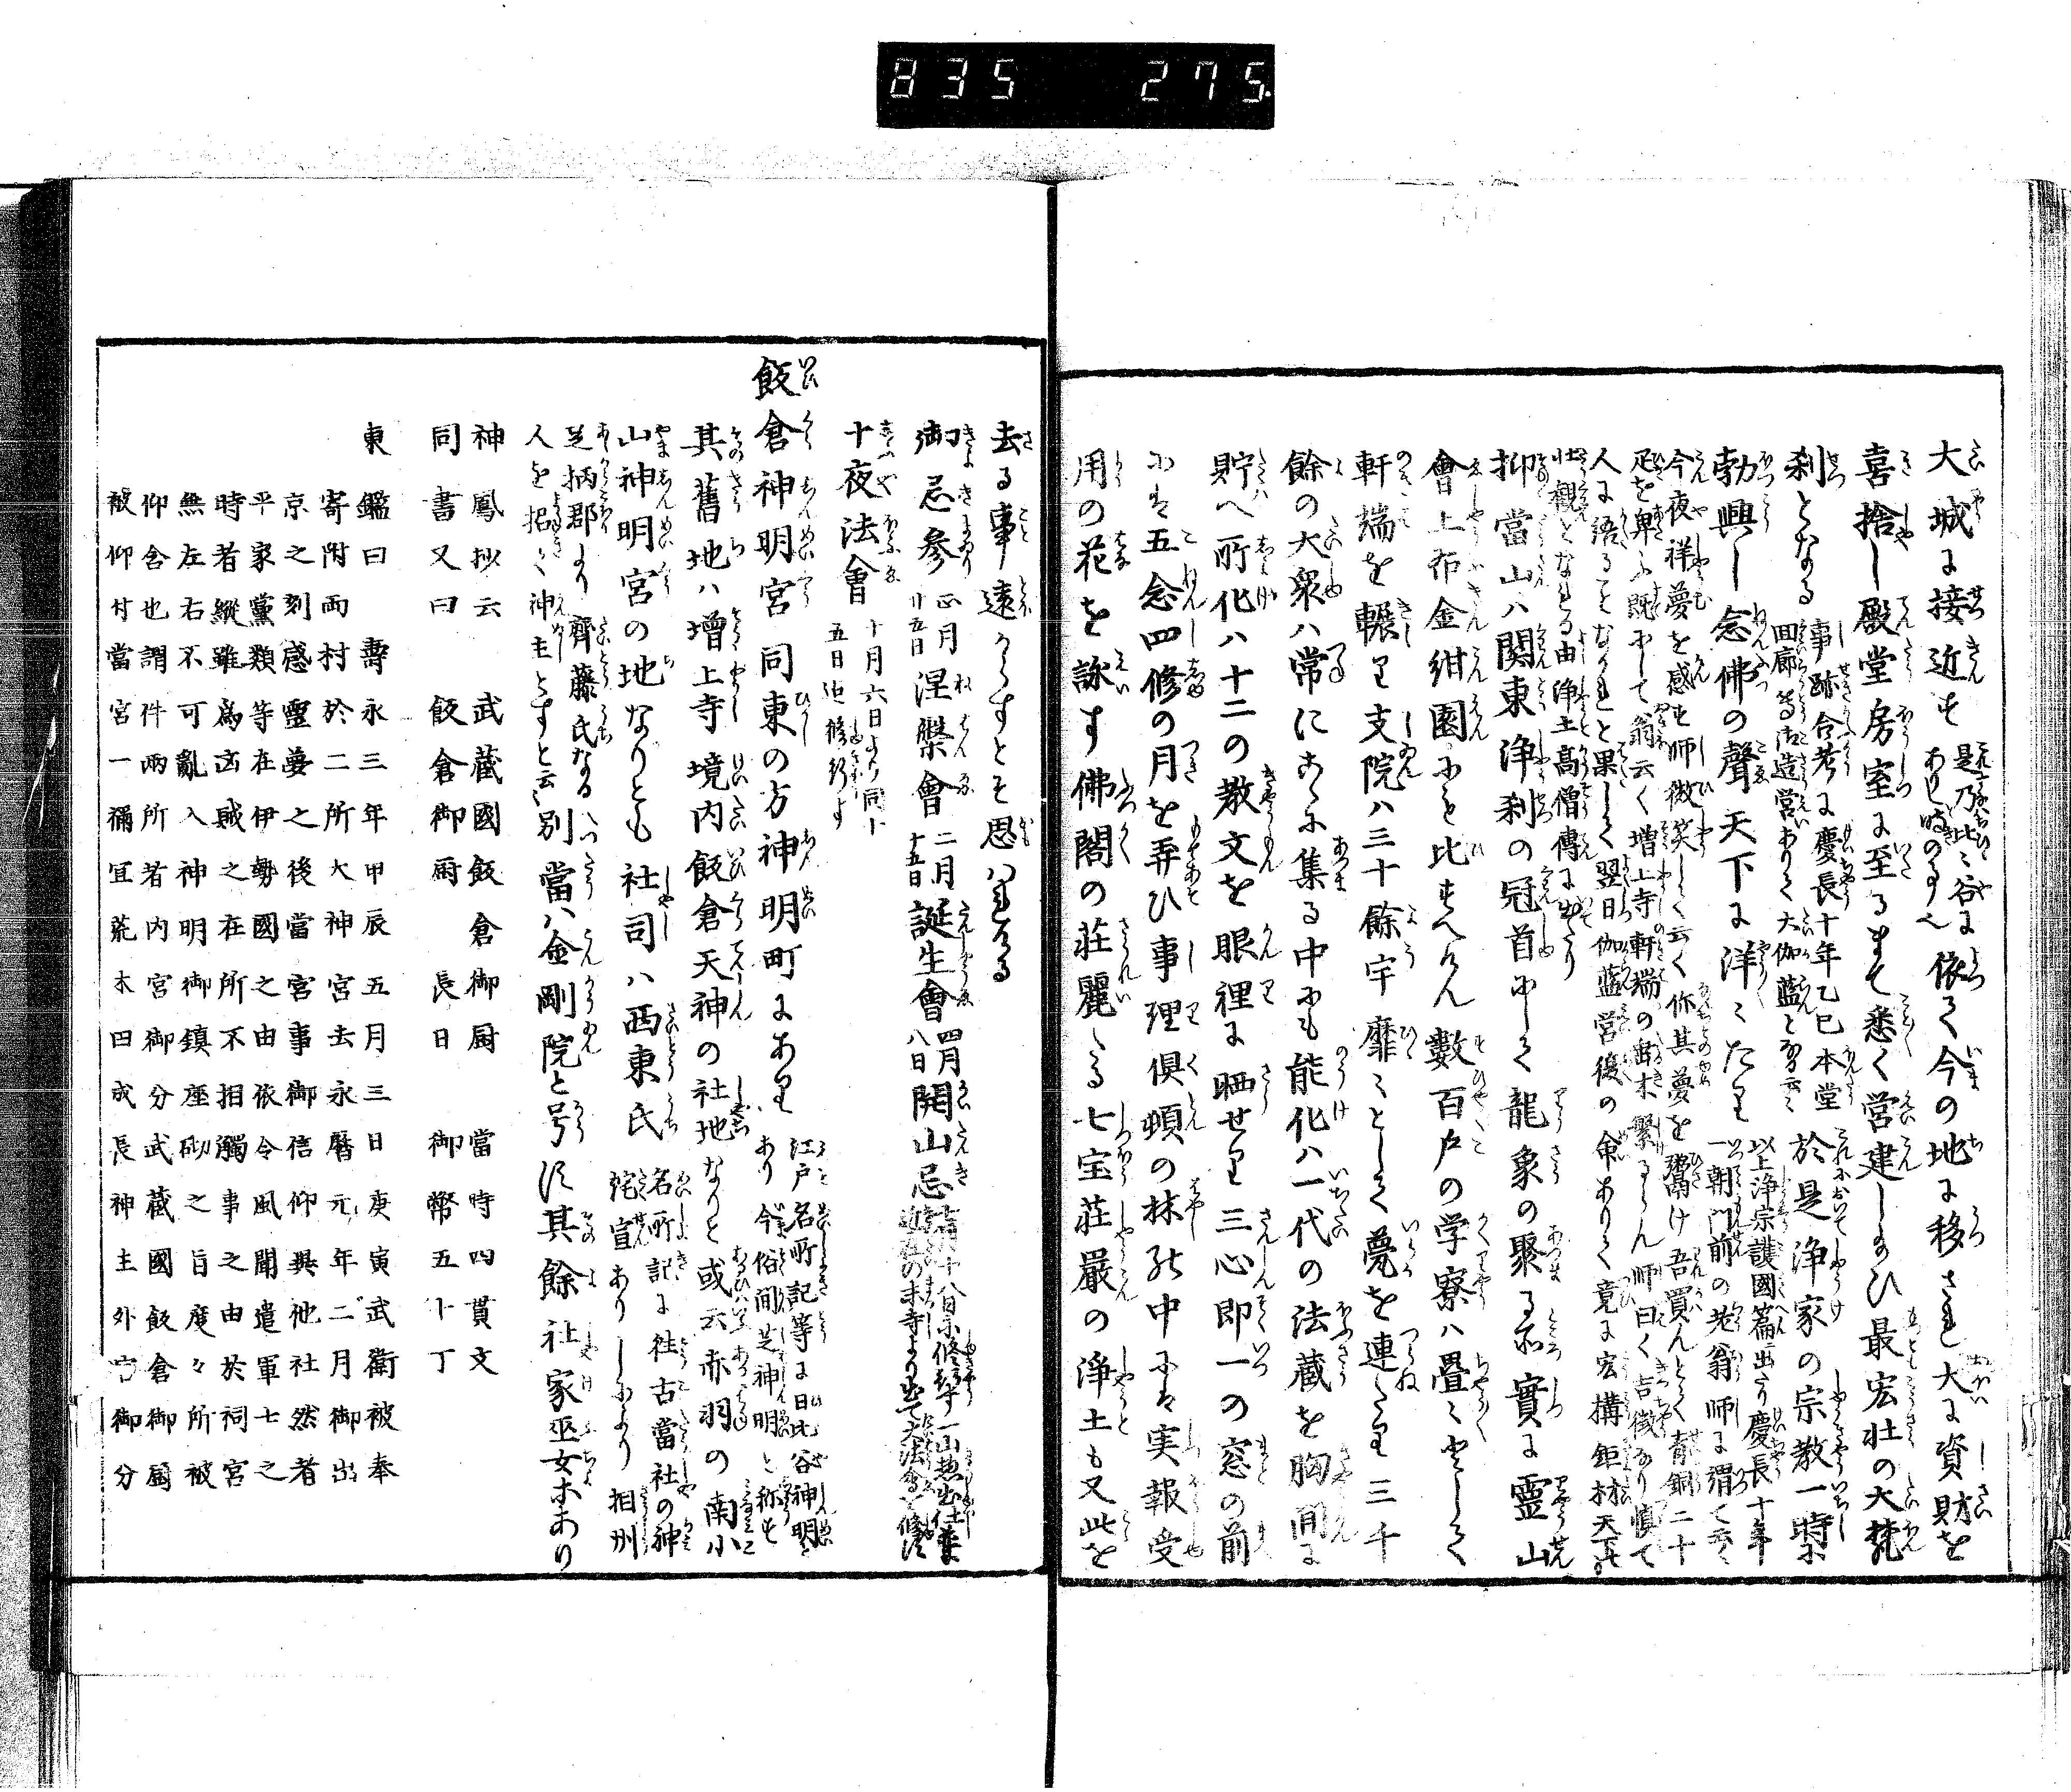 835 275
大城に接近す 是乃比々谷に
ありし時のる
依て今の地に移され大に資財を
喜捨し殿堂房室に至るまで悉く営建し給ひ最宏壮の大梵
刹となる 事跡合考に慶長十年乙巳本堂
回廊等御造営ありて大伽藍となる云々
於是浄家の宗教一時に
勃興し念佛の聲天下に洋々たり 以上浄宗護國篇ニ出たり慶長十年
一朝門前の老翁師に謂て云く
今夜祥夢を感す師微笑して云く你其夢を鬻け吾買んとて青銅二十
疋を与ふ既にして翁云く増上寺軒端の
樹木繁るらん師曰く吉徴なり慎て
人に語ることなかれと果して翌日伽藍営復の命ありて竟に宏搆鉅材天下の
壮観となれる由浄土高僧傳に出たり
抑當山ハ関東浄刹の冠首にして龍象の聚る所實に霊山
會上布金紺園にも比すべけん數百戸の学寮ハ疊々として
軒端を輾り支院ハ三十餘宇靡々として甍を連たり三千
餘の大衆ハ常にこゝに集る中にも能化ハ一代の法蔵を胸間に
貯へ所化ハ十二の教文を眼裡に晒せり三心即一の窓の前
には五念四修の月を弄ひ事理倶頓の林の中には実報受
用の花を詠す佛閣の荘麗たる七宝荘嚴の浄土も又此を
去る事遠からすとそ思ハれける
御忌参 正月
廿五日
涅槃會 二月
十五日
誕生會 四月
八日
開山忌
十夜法會 十月六日より同十
五日迄修行す
飯倉神明宮 同東の方神明町にあり 江戸名所記等に日比谷神明と
あり今俗間芝神明と称す
其舊地ハ増上寺境内飯倉天神の社地なりと或云赤羽の南小
山神明宮の地なりとも社司ハ西東氏 名所記に往古當社の神
託宣ありしにより相州
足柄郡より齊藤氏なる
人を招て神主とすと云云
別當ハ金剛院と号す其餘社家巫女等あり
神鳳抄云 武藏國飯倉御厨 當時四貫文
同書又曰 飯倉御厨 長日 御幣五十丁
東鑑曰壽永三年甲辰五月三日庚寅武衛被奉
寄附両村於二所大神宮去永暦元年二月御出
京之刻感靈夢之後當宮事御信仰異他社然者
平家黨類等在伊勢國之由依令風聞遣軍士之
時者縱雖爲凶賊之在所不相觸事之由於祠宮
無左右不可亂入神明御鎮座砌之旨度々所被
仰含也謂件両所者内宮御分武藏國飯倉御厨
被仰付當宮一禰宜荒木田成長神主外宮御分